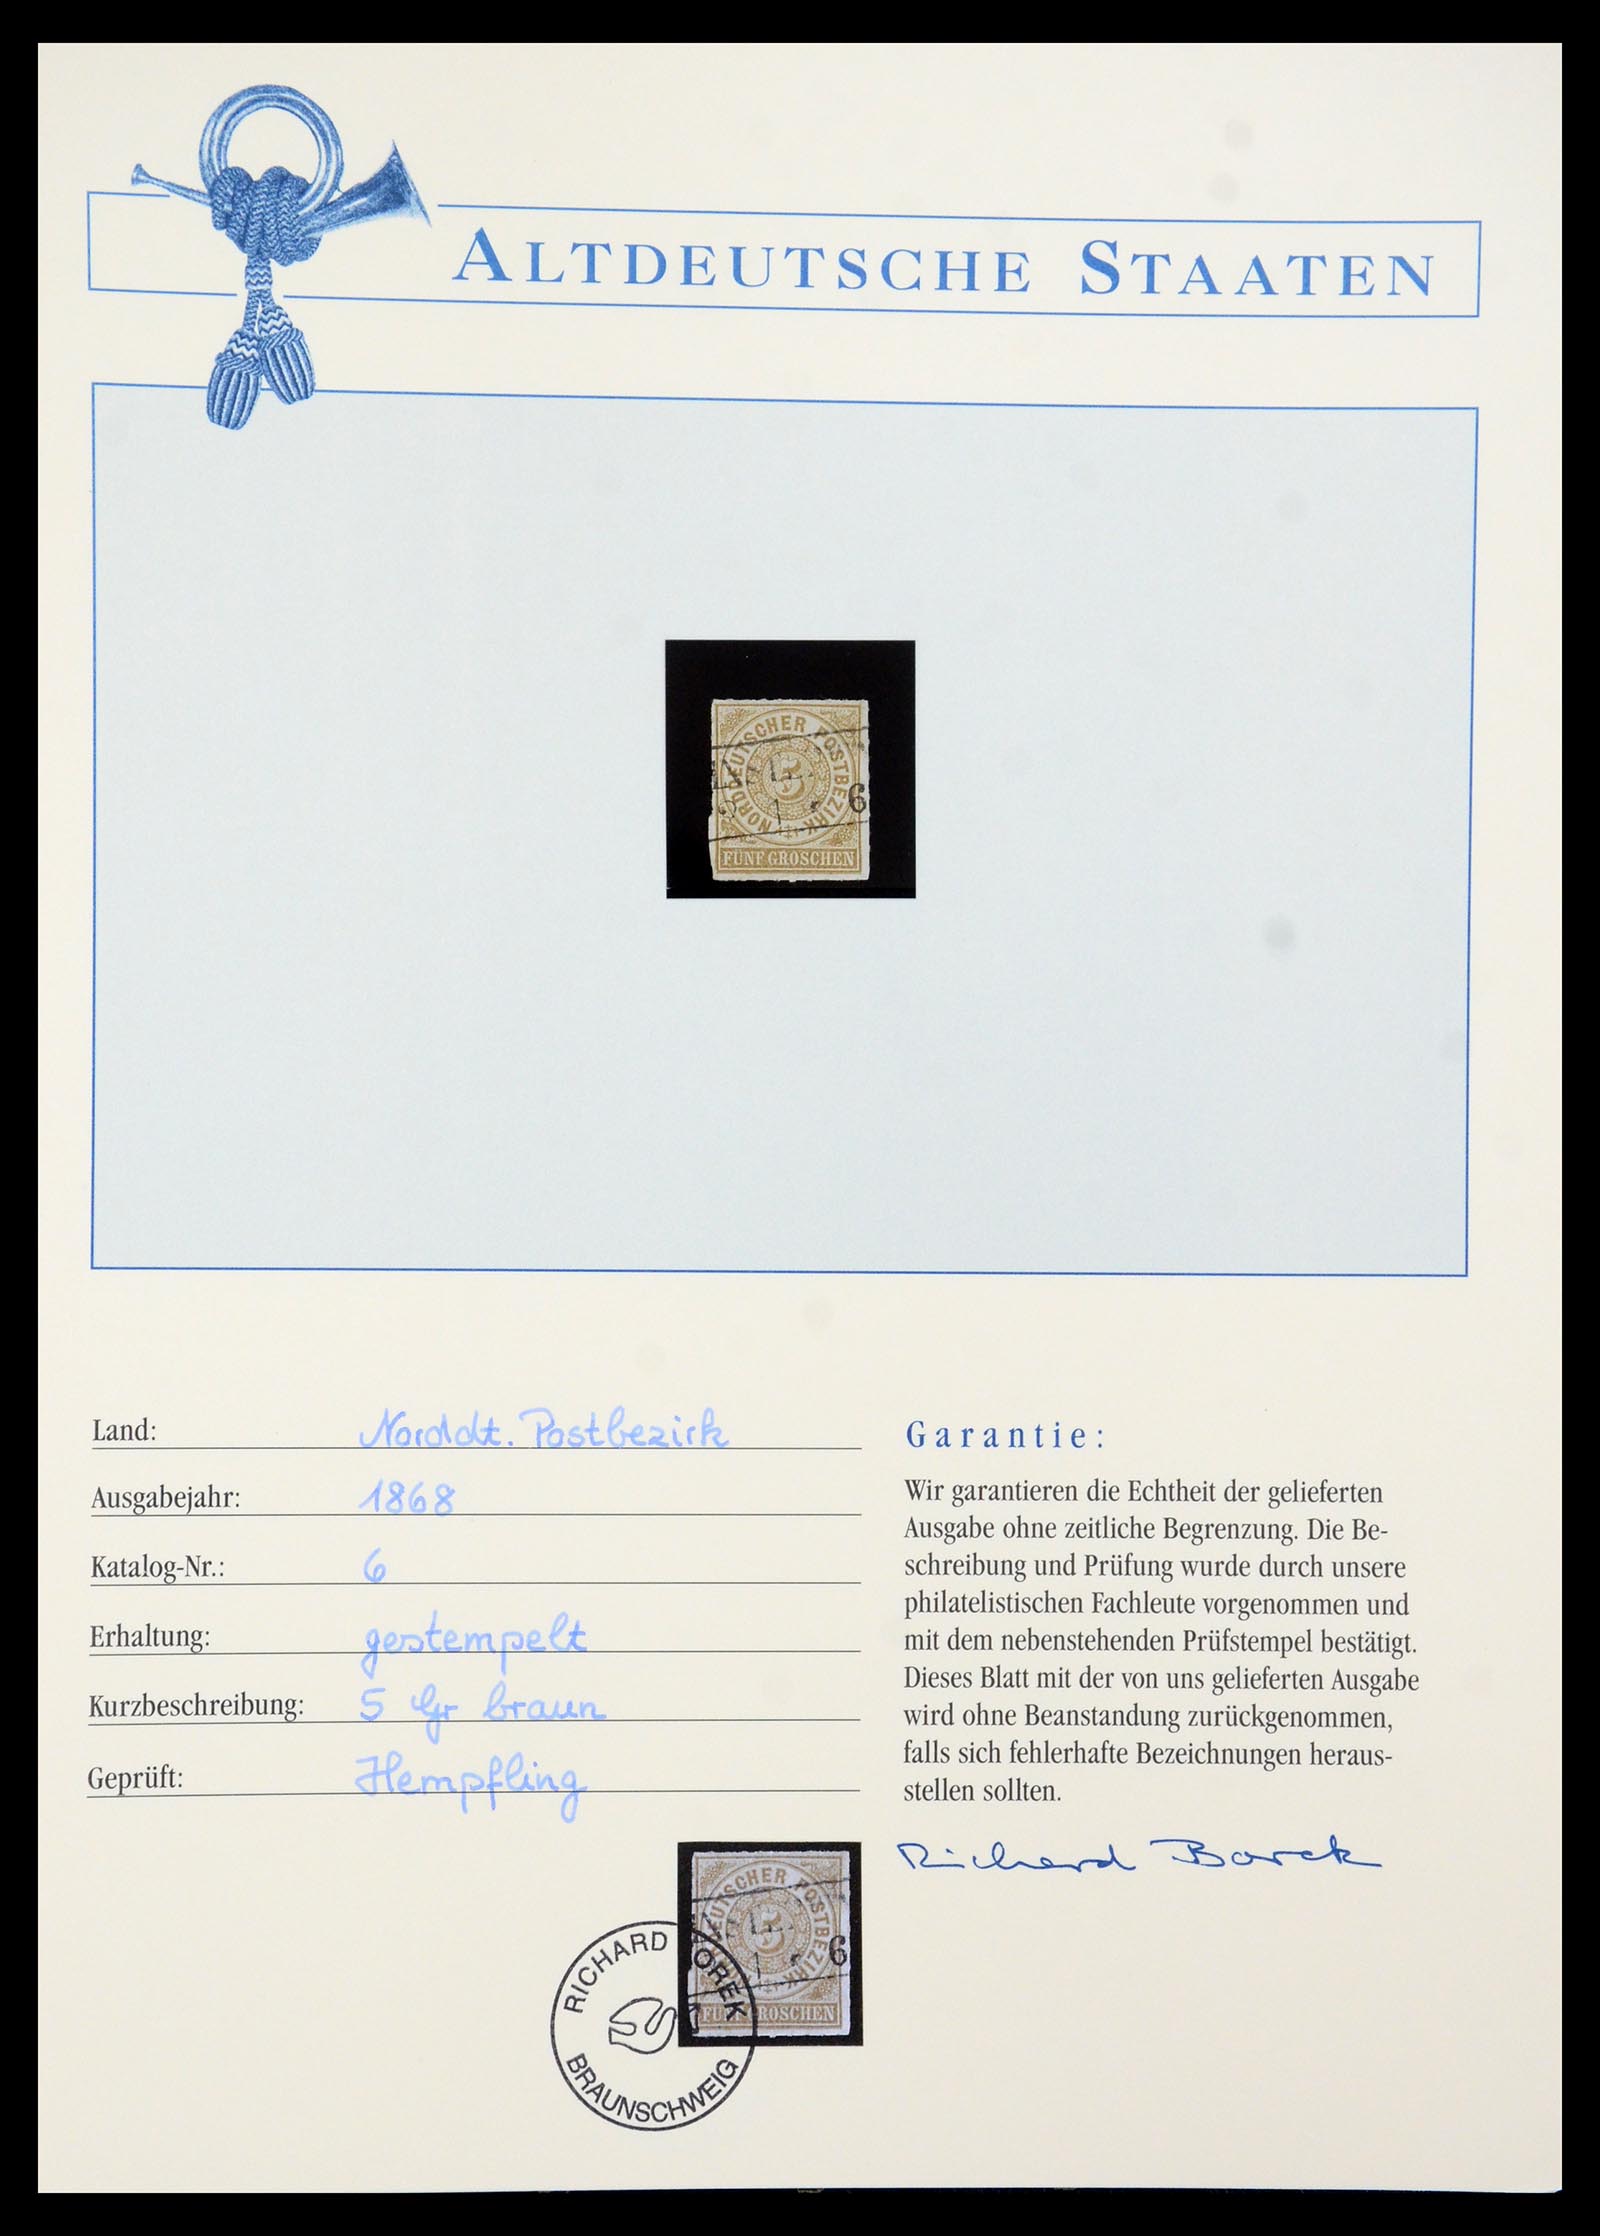 ALTDEUTSCHE STAATEN
NORDDEUTSCHER POSTBEZIRK
5
6
FÜNF GROSCHEN
Land: Norddt. Postbezirk
Ausgabejahr: 1868
Katalog-Nr.: 6
Erhaltung: gestempelt
Kurzbeschreibung: 5 Gr braun
Geprüft: Hempfling
Garantie:
Wir garantieren die Echtheit der gelieferten
Ausgabe ohne zeitliche Begrenzung. Die Be-
schreibung und Prüfung wurde durch unsere
philatelistischen Fachleute vorgenommen und
mit dem nebenstehenden Prüfstempel bestätigt.
Dieses Blatt mit der von uns gelieferten Ausgabe
wird ohne Beanstandung zurückgenommen,
falls sich fehlerhafte Bezeichnungen heraus-
stellen sollten.
Richard Borek
NORDDEUTSCHER POSTBEZIRK
5
6
FÜNF GROSCHEN
RICHARD BOREK
BRAUNSCHWEIG